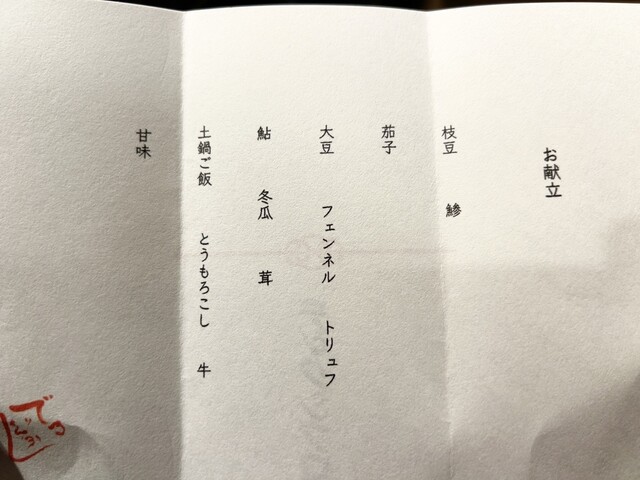 お献立
枝豆 鯵
茄子
大豆 フェンネル トリュフ
鮎 冬瓜 茸
土鍋ご飯 とうもろこし 牛
甘味